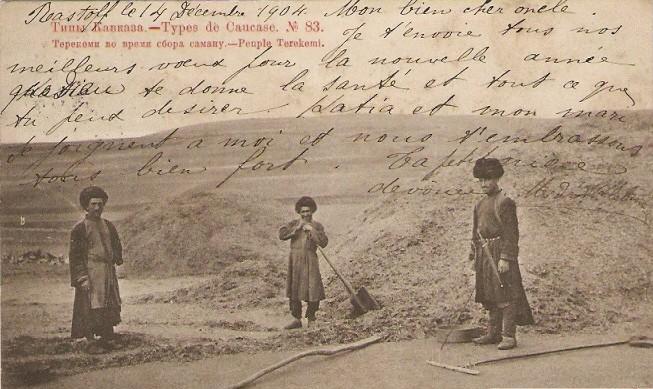 Rastoff le 14 Décembre 1904. Mon bien cher oncle.
Типы Кавказа.—Types de Caucase. № 83.
Je t'envoie tous nos
Терекеми во время сбора саману.—Peuple Terekemi.
meilleurs voeux pour la nouvelle année
que Dieu te donne la santé et tout ce que
tu peux desirer. Katia et mon mari
se joignent a moi et nous t'embrassons
tous bien fort. Ta petite niece
devouée